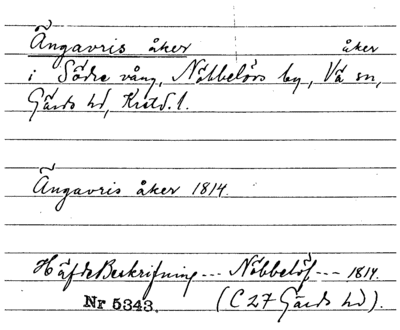 Ängavris åker åker
i Södre vång, Nöbbelövs by, Vä sn,
Gärds hd, Krstd. l.
Ängavris åker 1814.
HäfdeBeskrifning --- Nöbbelöf, --- 1814.
Nr 5343. (C 27 Gärds hd).